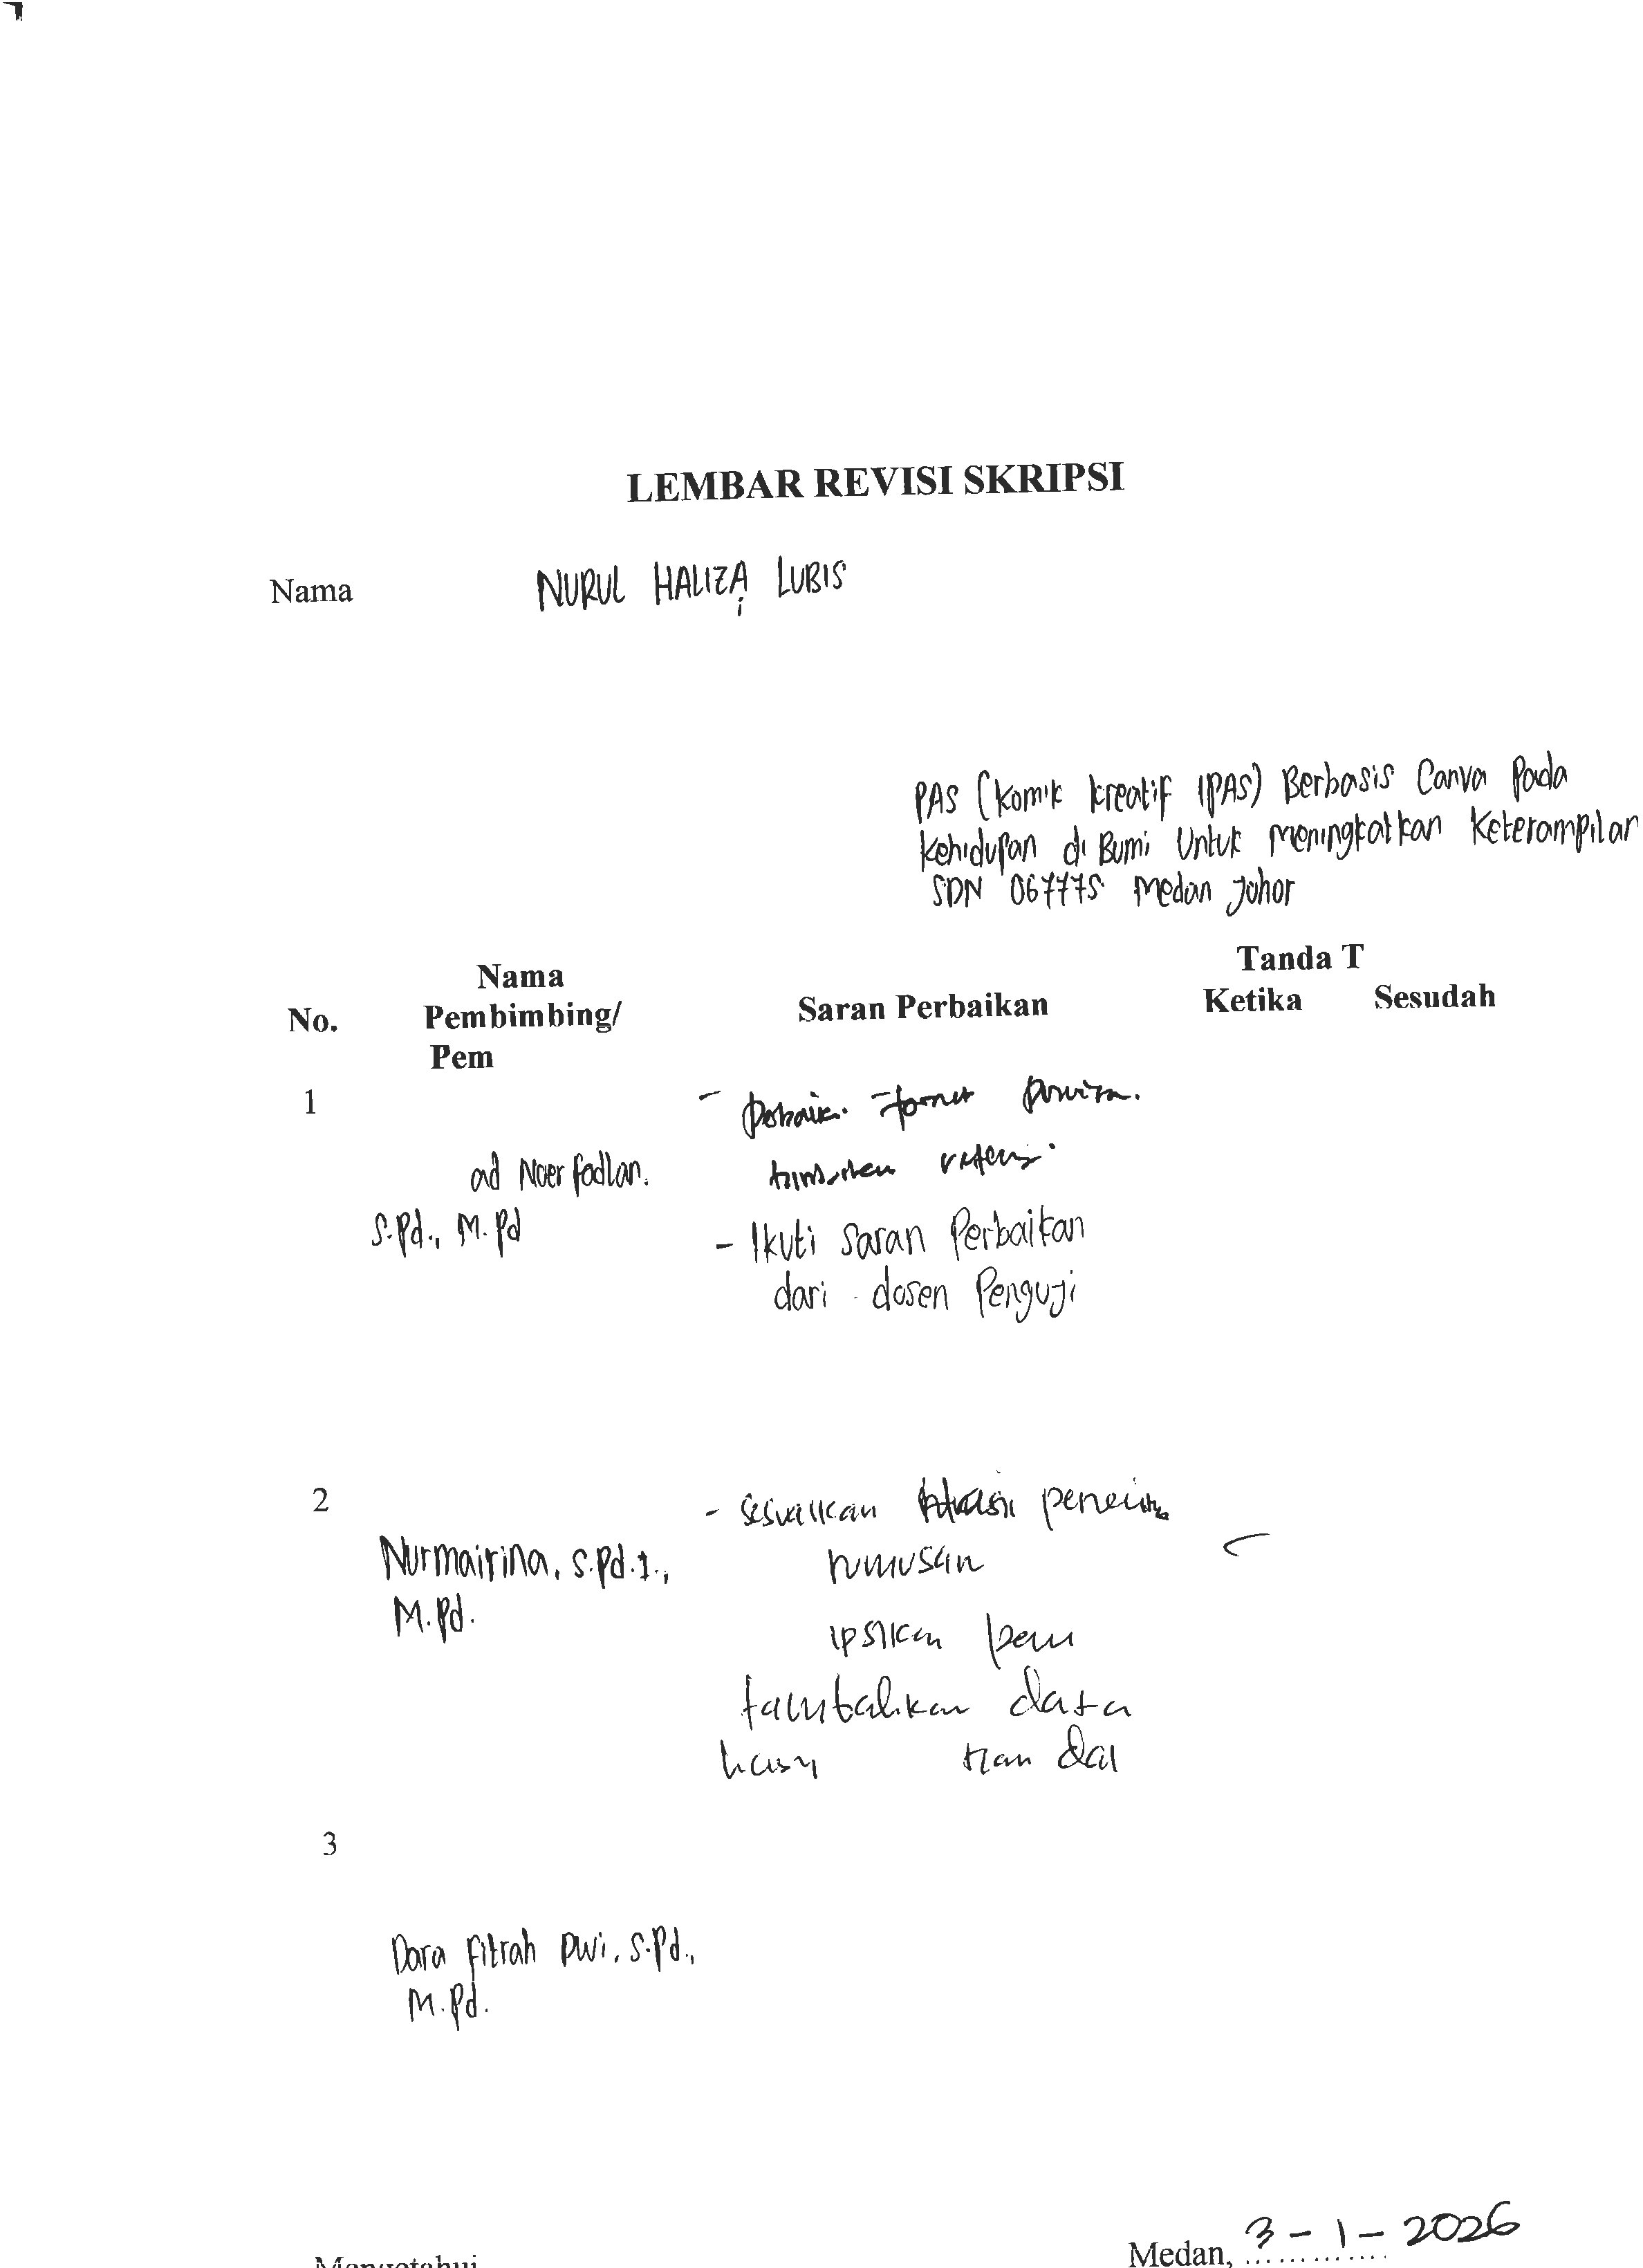 LEMBAR REVISI SKRIPSI
Nama NURUL HALIZA LUBIS
PAS (Komik kreatif IPAS) Berbasis Canva Pada
Kehidupan di Bumi Untuk Meningkatkan Keterampilan
SDN 067775 Medan Johor
Nama
Pembimbing/
Pem
No.
Saran Perbaikan
Tanda T
Ketika Sesudah
1
ad Noer fadlan.
S.Pd., M.Pd
- format
- Ikuti saran Perbaikan
dari dosen Penguji
2
Nurmairina, S.Pd.I.,
M.Pd.
- sesuaikan
rumusan
ipsikan pem
tambahkan data
tian dal
3
Dara Fitrah Dwi, S.Pd.,
M.Pd.
Medan, 3-1-2026
Mengetahui